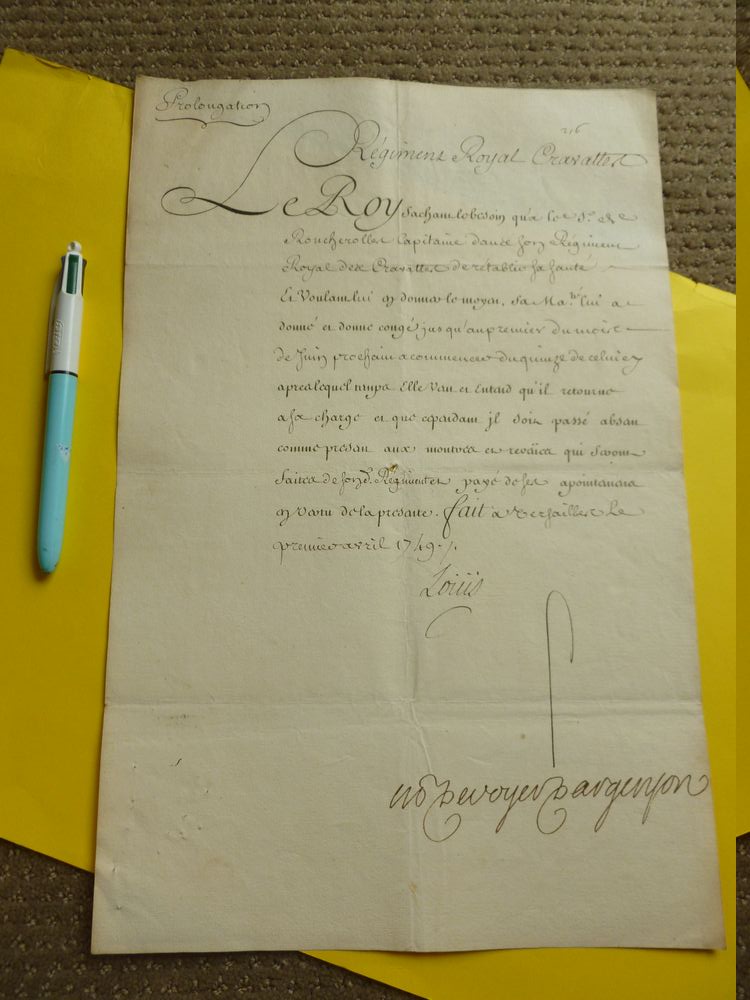 Prolongation
Régiment Royal Cravattes
Le Roy Sachant le besoin qu'a le S.r de
Roncherolles Capitaine dans son Régiment
Royal des Cravattes de rétablir sa santé
Et Voulant lui en donner le moyen, Sa Ma.té lui a
donné et donne congé jusqu'au premier du mois
de Juin prochain a commencer du quinze de celuicy
apres lequel temps Elle Veut et Entend qu'il retourne
a sa charge et que cependant il soit passé absent
comme present aux montres et reveües qui seront
faites de son d. Régiment et payé de ses apointemens
en vertu de la presente. fait a Versailles le
premier avril 1749 ./.
Louis
M de Voyer D'argenson